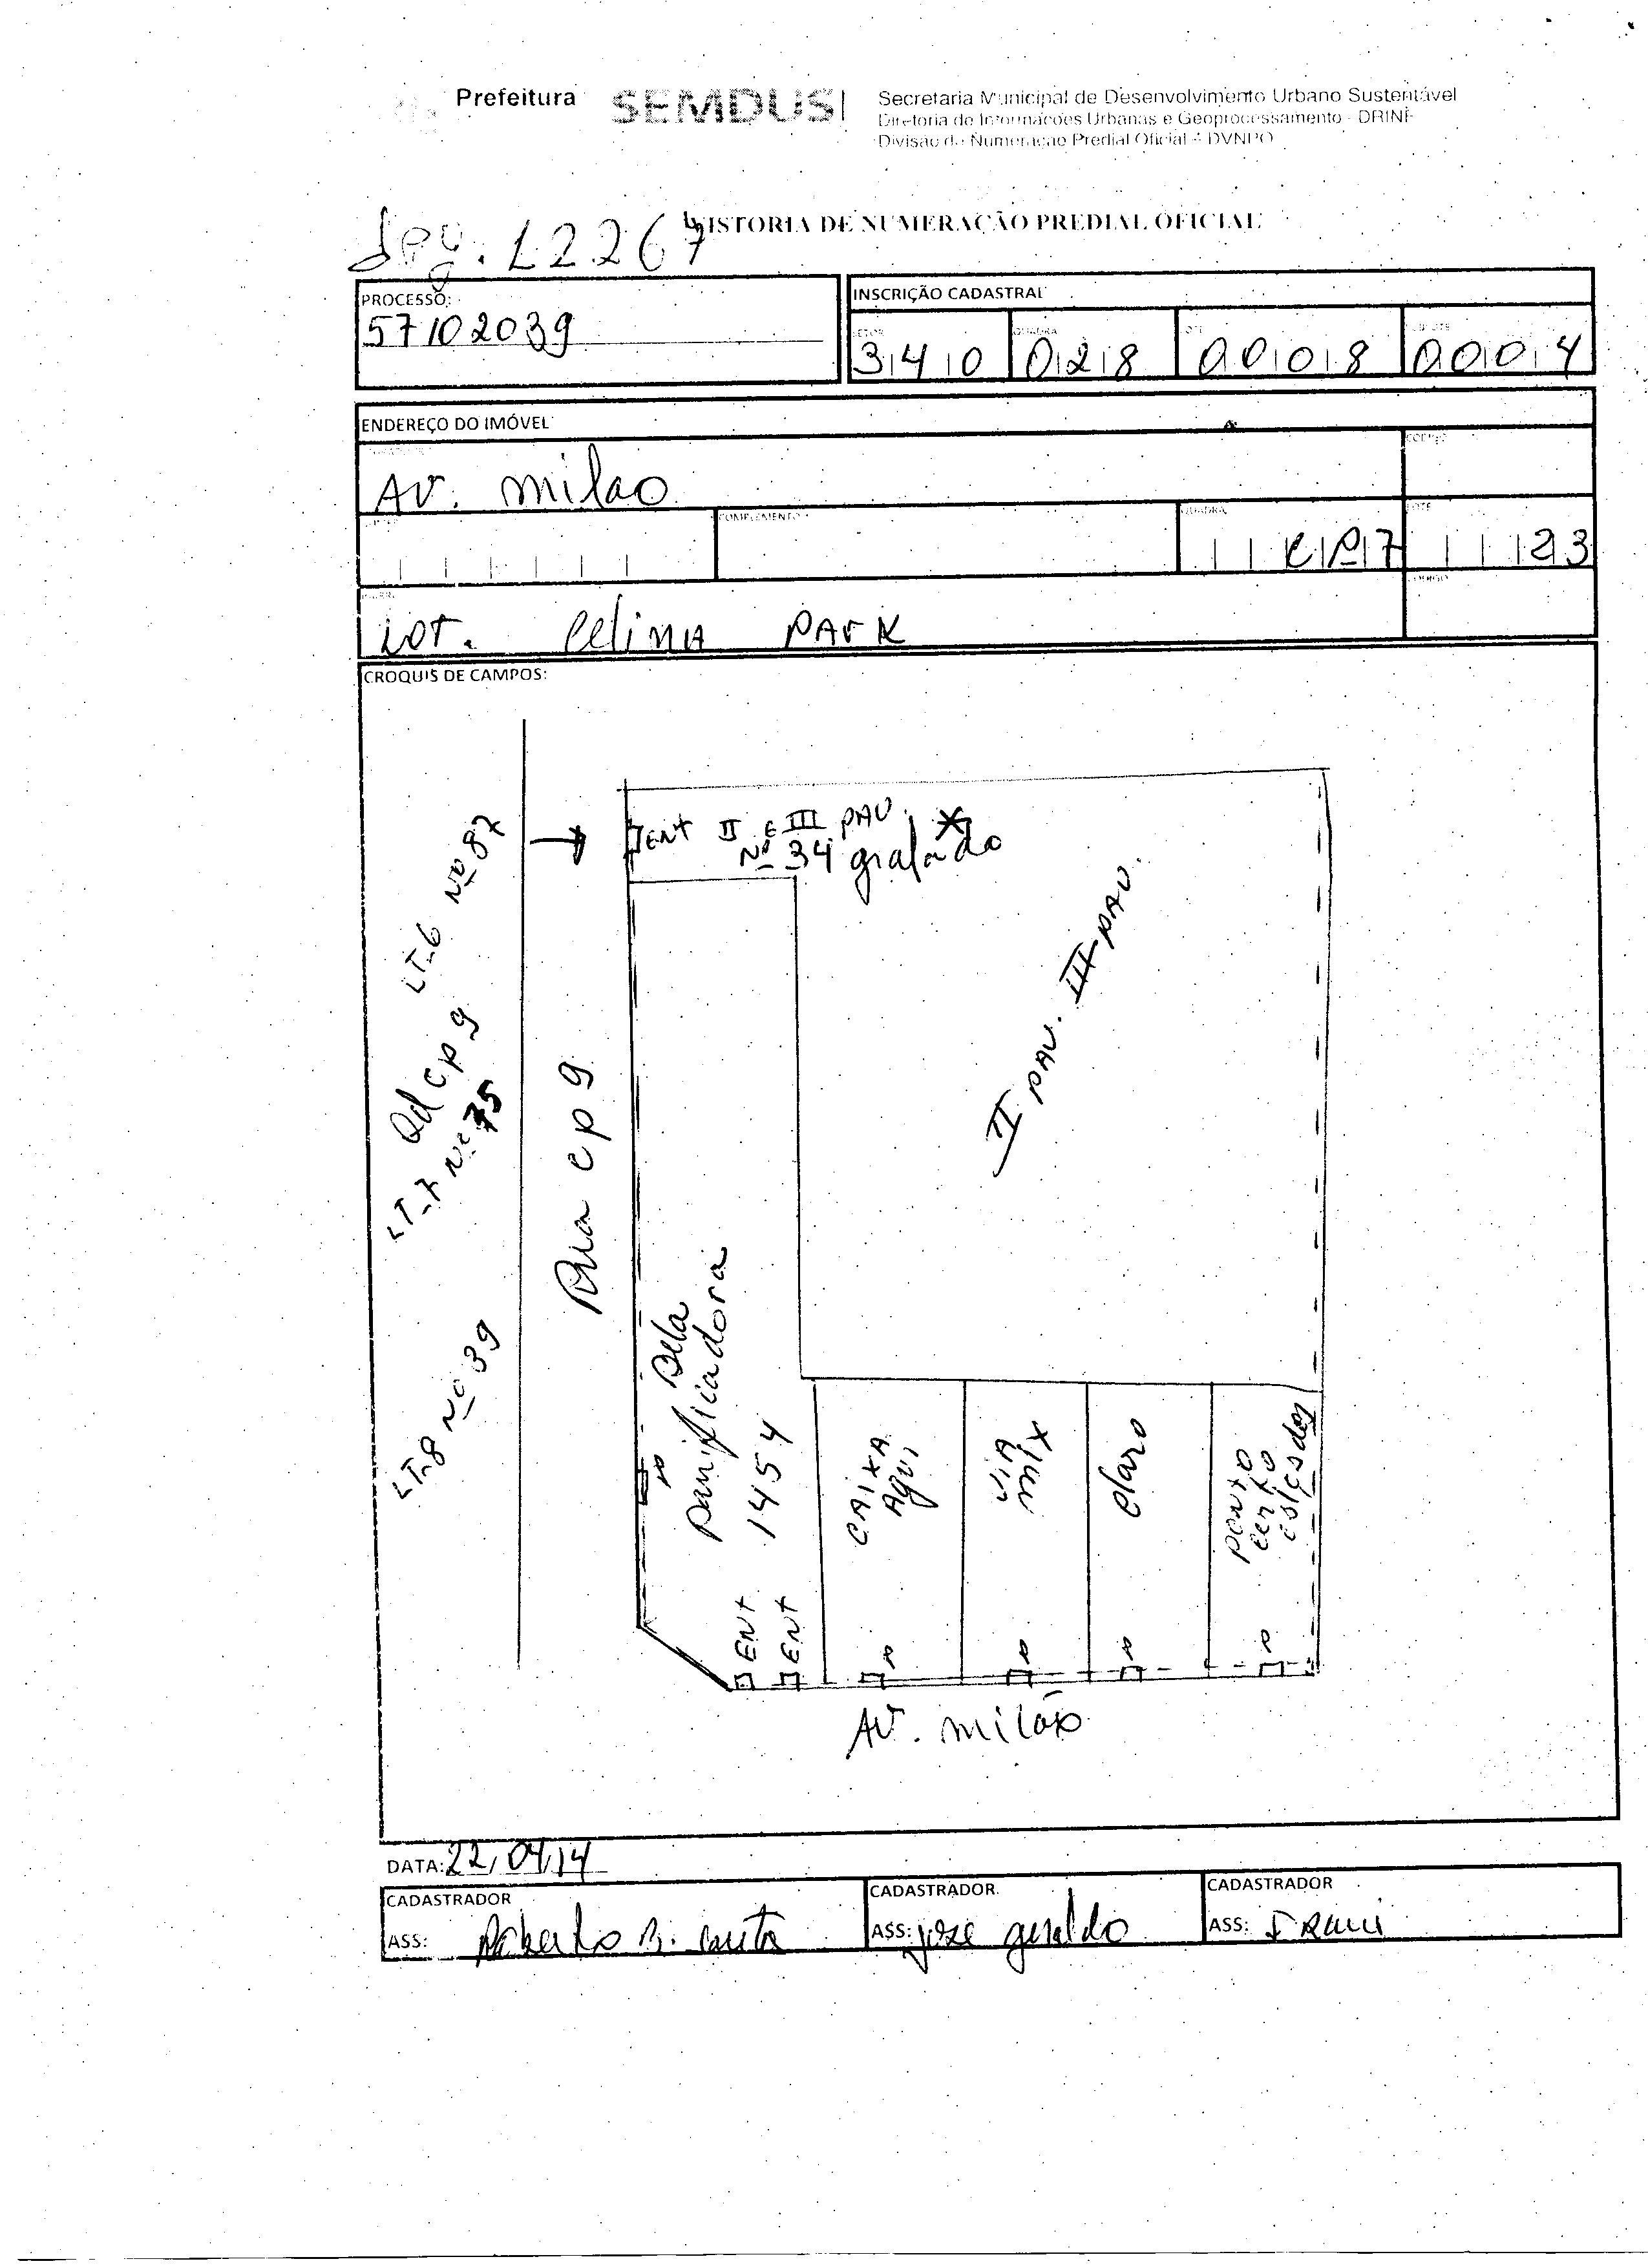 Prefeitura SEMDUS
Secretaria Municipal de Desenvolvimento Urbano Sustentável
Diretoria de Informações Urbanas e Geoprocessamento - DRINF
Divisão de Numeração Predial Oficial - DVNPO
VISTORIA DE NUMERAÇÃO PREDIAL OFICIAL
12267
PROCESSO:
57102039
INSCRIÇÃO CADASTRAL
SETOR QUADRA LOTE SUBLOTE
340 028 0008 0004
ENDEREÇO DO IMÓVEL
CÓDIGO
AV. milao
COMPLEMENTO
QUADRA
LOTE
CP7
23
BAIRRO
CÓDIGO
LOT. Celina PARK
CROQUIS DE CAMPOS:
ENT II E III PAV.
Nº 34 grafado
LT-6 Nº 87
Qd cp 9
LT-7 Nº 75
LT-8 Nº 39
Rua cp 9
II PAV. III PAV.
Bela
panificadora
1454
ENT
ENT
CAIXA
AQUI
VIA
mix
claro
ponto
certo
AV. milão
DATA: 22/04/14
CADASTRADOR
ASS: Roberto B.
CADASTRADOR
ASS: jose geraldo
CADASTRADOR
ASS: IRani